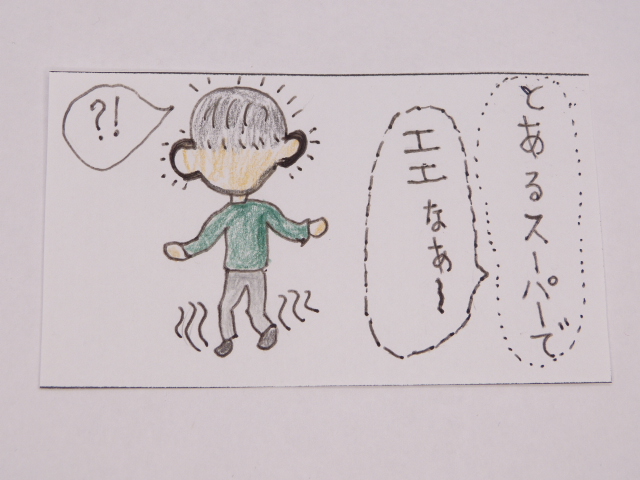 とあるスーパーで
エエなぁ〜
?!